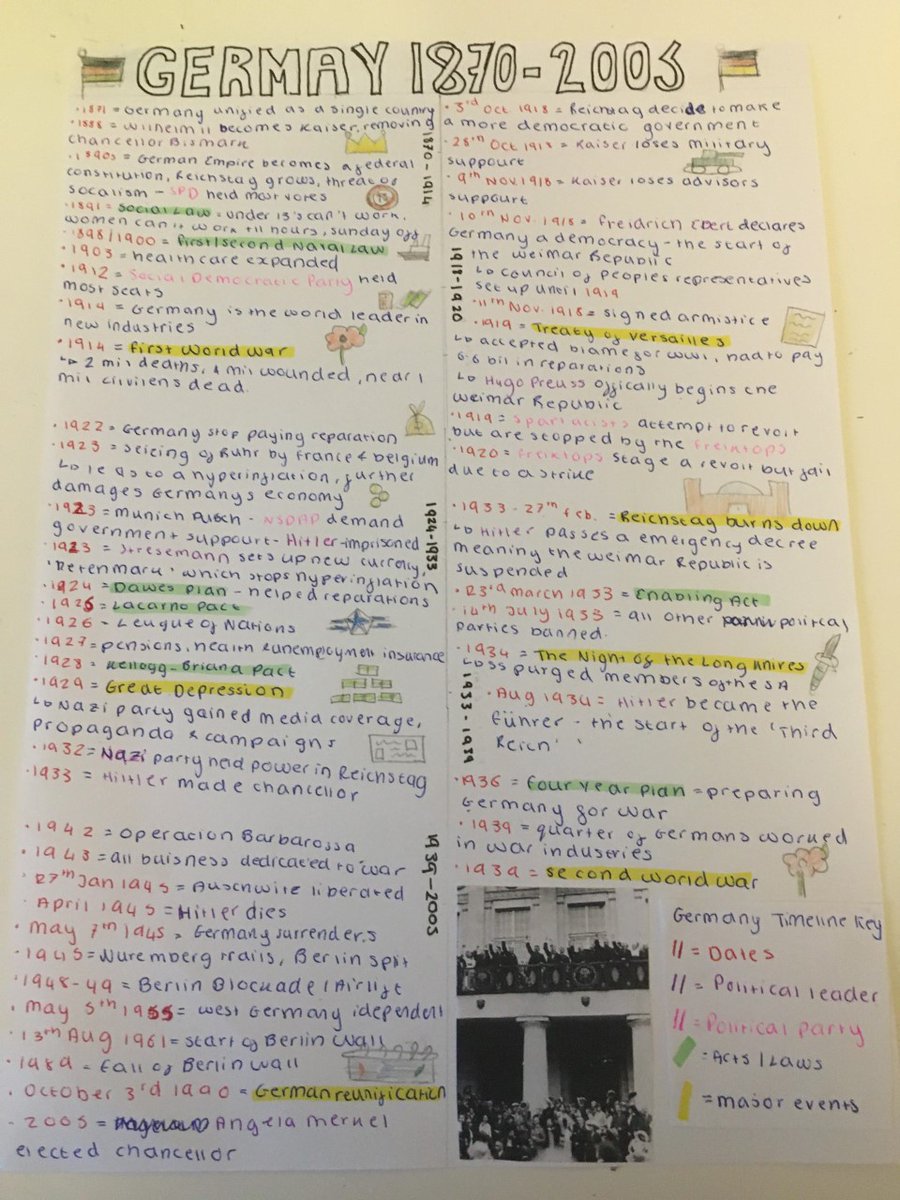 GERMAY 1870-2005
1870-1914
• 1871 = Germany unified as a single country
• 1888 = Wilhelm ii becomes Kaiser, removing
chancellor Bismark
• 1890s = German Empire becomes a federal
constitution, Reichstag grows, threat of
socalism - SPD held most votes
1891 = Social Law = under 13's can't work,
women can't work 11 hours, sunday off
• 1898/1900 = first/second Naval Law
• 1903 = healthcare expanded
• 1912 = Social Democratic Party held
most seats
• 1914 = Germany is the world leader in
new industries
• 1914 = First World War
↳ 2 mil deaths, 4 mil wounded, near 1
mil civiliens dead.
1918-1920
• 3rd Oct 1918 = Reichstag decide to make
a more democratic government
• 28th Oct 1918 = Kaiser loses military
suppourt
• 9th Nov 1918 = Kaiser loses advisors
suppourt
• 10th Nov. 1918 = Freidrich Ebert declares
Germany a democracy - the start of
the Weimar Republic
↳ Council of peoples representatives
set up until 1919
• 11th Nov. 1918 = signed armistice
• 1919 = Treaty of versailles
↳ accepted blame for WW1, had to pay
6.6 bil in reparations
↳ Hugo Preuss offically begins the
Weimar Republic
• 1919 = Spartacists attempt to revolt
but are stopped by the freikfops
• 1920 = freikfops stage a revolt but fail
due to a strike
1924-1933
• 1922 = Germany stop paying reparation
• 1923 = seicing of Ruhr by France & belgium
↳ leads to a hyperinflation, further
damages Germanys economy
• 1923 = Munich Putsch - NSDAP demand
government suppourt - Hitler - imprisoned
• 1923 = Stresemann sets up new currency,
'Retenmark' which stops hyperinflation
• 1924 = Dawes Plan - helped reparations
• 1925 = Lacarno Pact
• 1926 - League of Nations
• 1927 = pensions, health & unemployment insurance
• 1928 = Kellogg-Briand Pact
• 1929 = Great Depression
↳ Nazi party gained media coverage,
propaganda & campaigns
• 1932 = Nazi party held power in Reichstag
• 1933 = Hitler made chancellor
1933-1939
• 1933 - 27th feb. = Reichstag burns down
↳ Hitler passes a emergency decree
meaning the weimar Republic is
suspended
• 23rd march 1933 = Enabling Act
• 14th July 1933 = all other political
parties banned.
• 1934 = The Night of the Long Knives
↳ SS purged members of the SA
• Aug 1934 = Hitler became the
führer - the start of the 'Third
Reich'
• 1936 = Four Year Plan = preparing
Germany for war
• 1939 = quarter of Germans worked
in war industries
• 1939 = second world war
1939-2005
• 1942 = Operacion Barbarossa
• 1943 = all buisness dedicated to war
• 27th Jan 1945 = Auschwitz liberated
• April 1945 = Hitler dies
• May 7th 1945 = Germany surrenders
• 1945 = Nuremberg trails, Berlin split
• 1948-49 = Berlin Blockade / Airlift
• May 5th 1955 = West Germany idependent
• 13th Aug 1961 = start of Berlin Wall
• 1989 = fall of Berlin Wall
• October 3rd 1990 = German reunification
• 2005 = Angela Merkel
elected chancellor
Germany Timeline Key
// = Dates
// = Political leader
// = Political party
= Acts / Laws
= major events